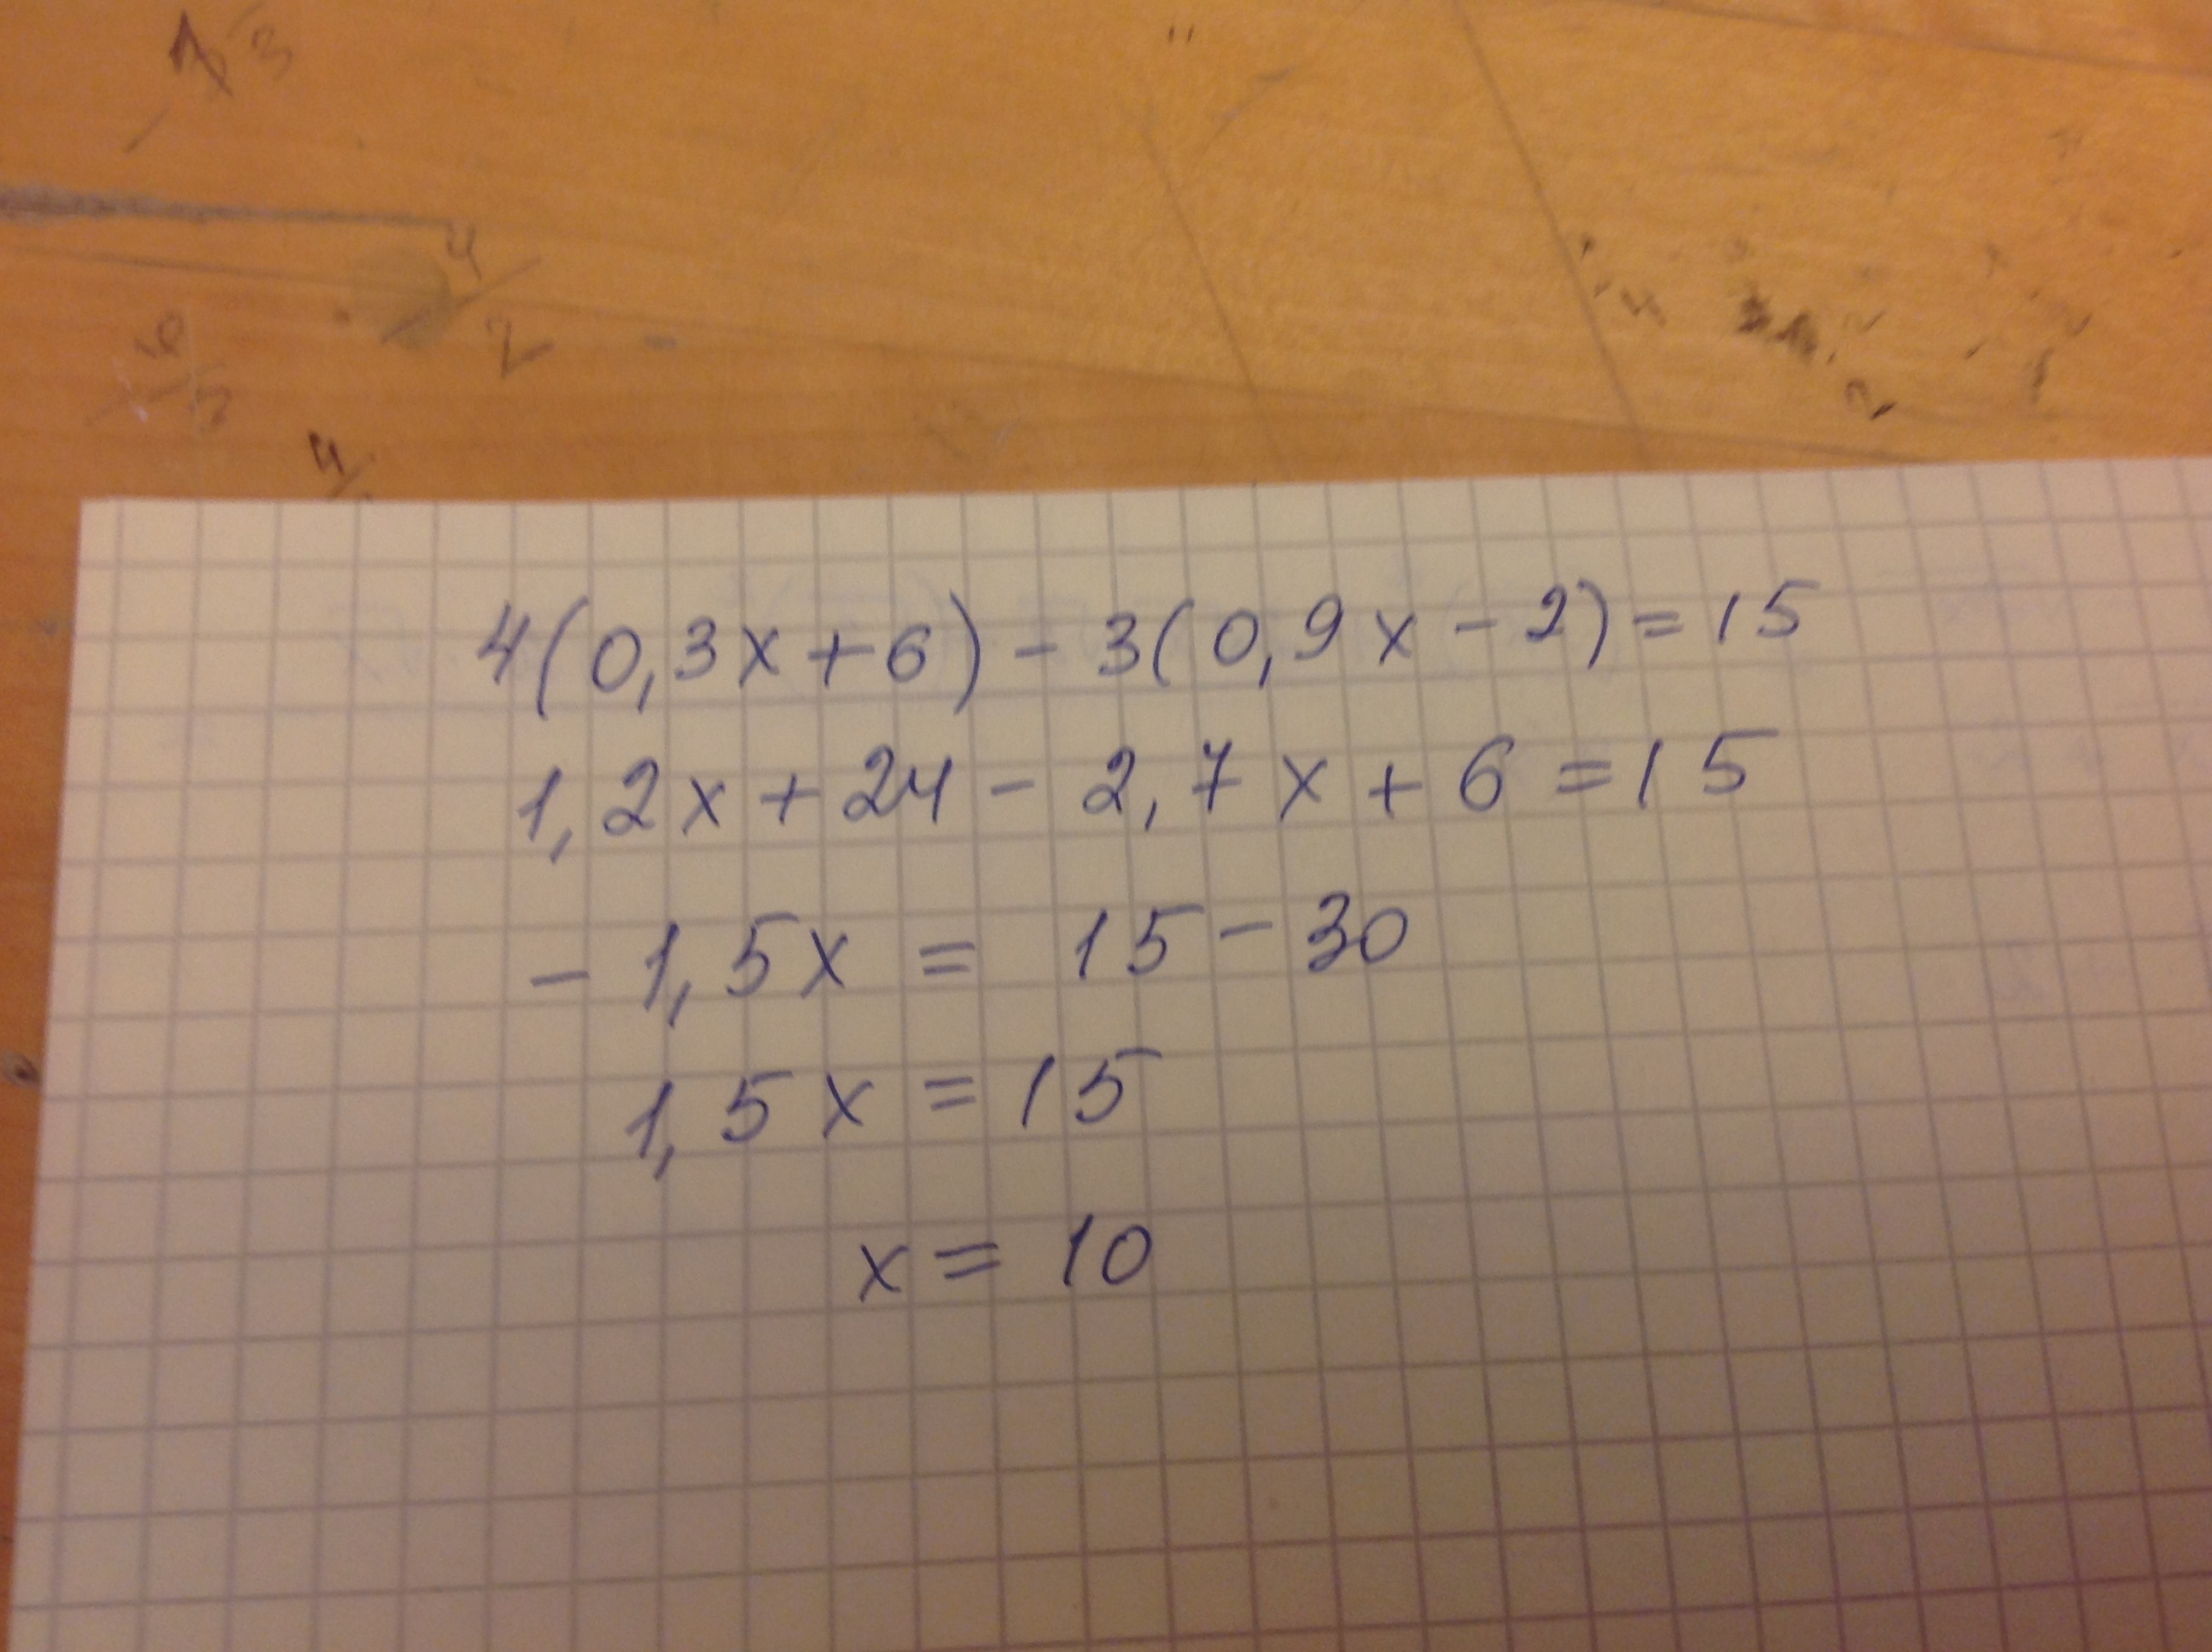 4(0,3x+6)-3(0,9x-2)=15
1,2x+24-2,7x+6=15
-1,5x=15-30
1,5x=15
x=10